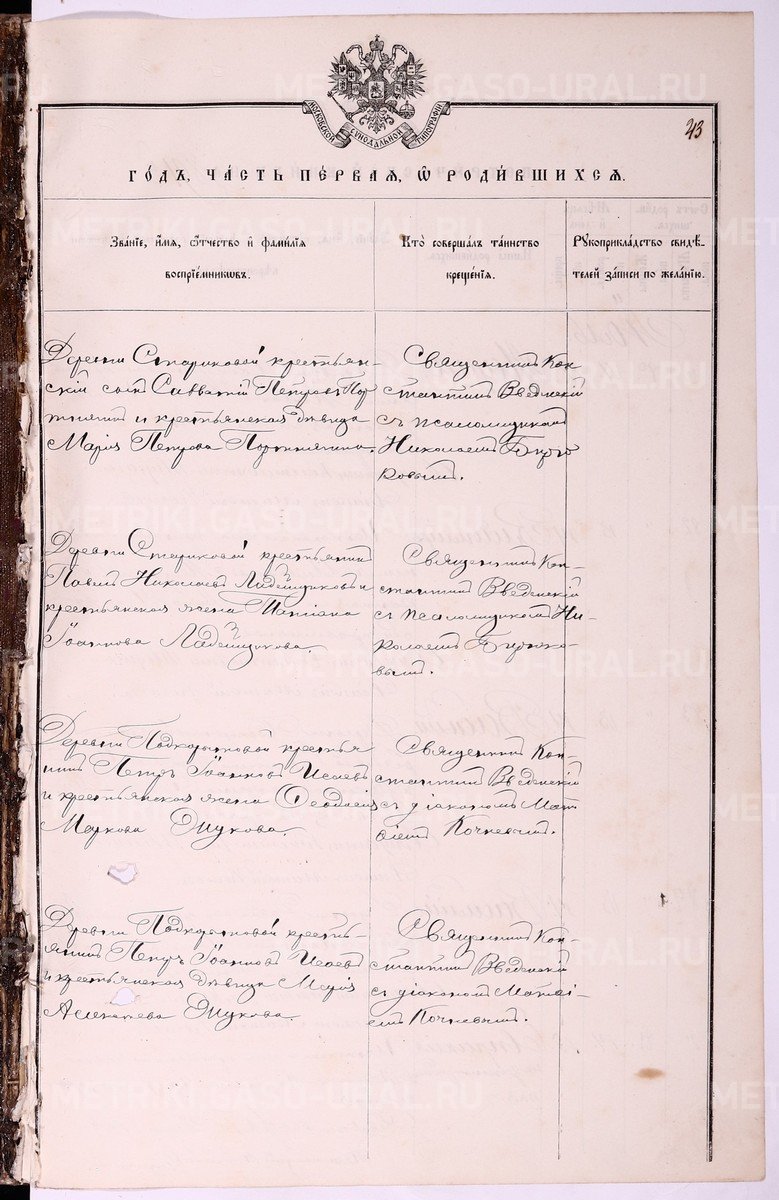 МОСКОВСКОЙ СѴНОДАЛЬНОЙ ТИПОГРАФІИ
43
ГО́ДЪ, ЧА́СТЬ ПЕ́РВАЯ, Ѡ҆ РОДИ́ВШИХСѦ.
Зва́нїе, и҆́мѧ, ѻ҆́тчество и҆ фами́лїѧ
воспрїе́мникѡвъ.
Кто̀ соверша́лъ та́инство
креще́нїѧ.
Рꙋкоприкла́дство свидѣ́-
телей за́писи по жела́нїю.
Деревни Стариковой крестьян-
скій сынъ Савватій Петровъ Пор-
тнягинъ и крестьянская дѣвица
Марія Петрова Портнягина.
Священникъ Кон-
стантинъ Введенскій
съ псаломщикомъ
Николаемъ Бирю-
ковымъ.
Деревни Стариковой крестьянинъ
Павелъ Николаевъ Ладейщиковъ и
крестьянская жена Татіана
Іоаннова Ладейщикова.
Священникъ Кон-
стантинъ Введенскій
съ псаломщикомъ Ни-
колаемъ Бирюко-
вымъ.
Деревни Подкорытовой крестья-
нинъ Петръ Іоанновъ Исаевъ
и крестьянская жена Ѳеодосія
Маркова Жукова.
Священникъ Кон-
стантинъ Введенскій
съ діакономъ Мат-
ѳіемъ Кочневымъ.
Деревни Подкорытовой кресть-
янинъ Петръ Іоанновъ Исаевъ
и крестьянская дѣвица Марія
Алексіева Жукова.
Священникъ Кон-
стантинъ Введенскій
съ діакономъ Матѳі-
емъ Кочневымъ.
METRIKI.GASO-URAL.RU